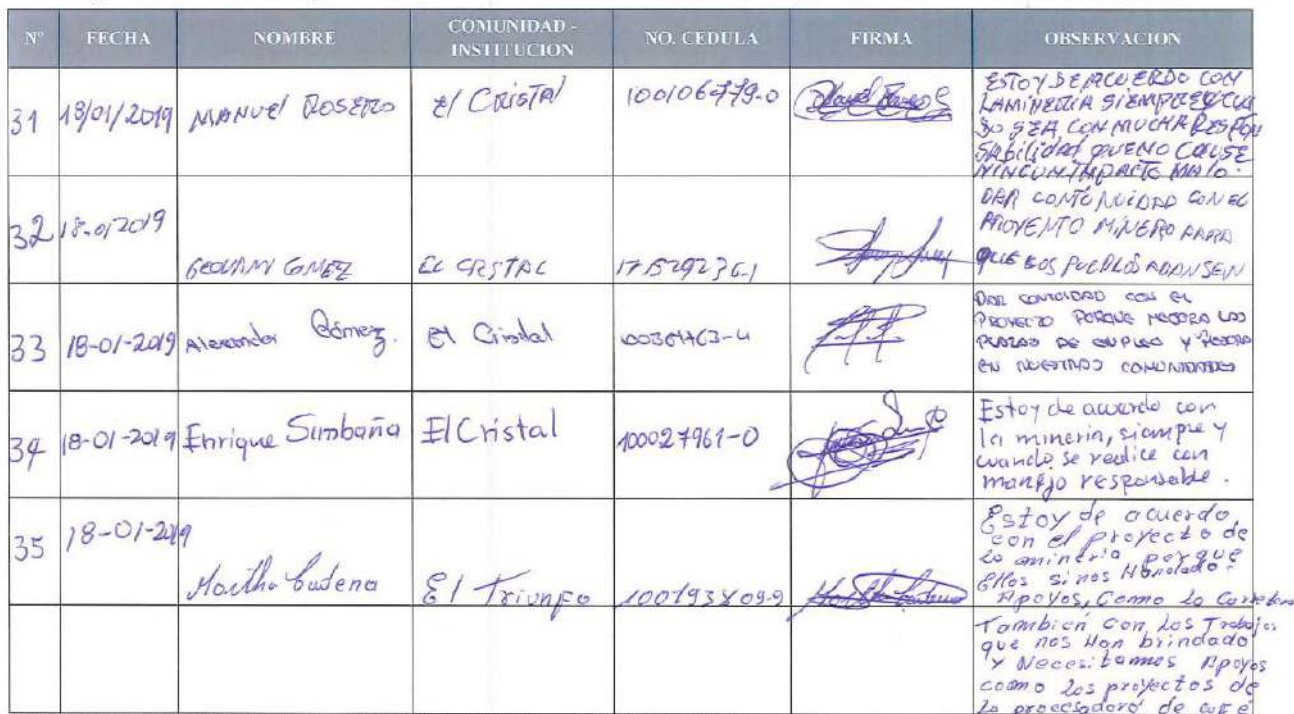 Nº FECHA NOMBRE COMUNIDAD - INSTITUCION NO. CEDULA FIRMA OBSERVACION
31 18/01/2019 MANUEl ROSERO El CRISTAl 100106779-0
ESTOY DE ACUERDO CON
LA MINERIA SIEMPRE Y CUA
DO SEA CON MUCHA RESPON
SAbilidad QUE NO CAUSE
NINGUN IMPACTO MAlO.
32 18-01-2019 GEOVANY GOMEZ EL CRSTAL
DAR CONTINUIDAD CON EL
PROYENTO MINERO PARA
QUE LOS PUEBLOS ABANSEN
33 18-01-2019 Alexander Gómez. El Cristal
DAR CONTOIDAD CON EL
PROYECTO PORQUE MEJORA LAS
PLAZAS DE EMPLEO Y MEJORA
EN NUESTRAS COMUNIDADES
34 18-01-2019 Enrique Simbaña El Cristal 100027961-0
Estoy de acuerdo con
la mineria, siempre y
cuando se realice con
manejo responsable.
35 18-01-2019 Martha Cadena El Triunfo
Estoy de acuerdo,
con el proyecto de
la mineria porque
Ellos si nos Han dado
Apoyos, Como La Carretera
Tambien con Los Trabajos
que nos Han brindado
y Necesitammos Apoyos
coomo Los proyectos de
La procesadora de café